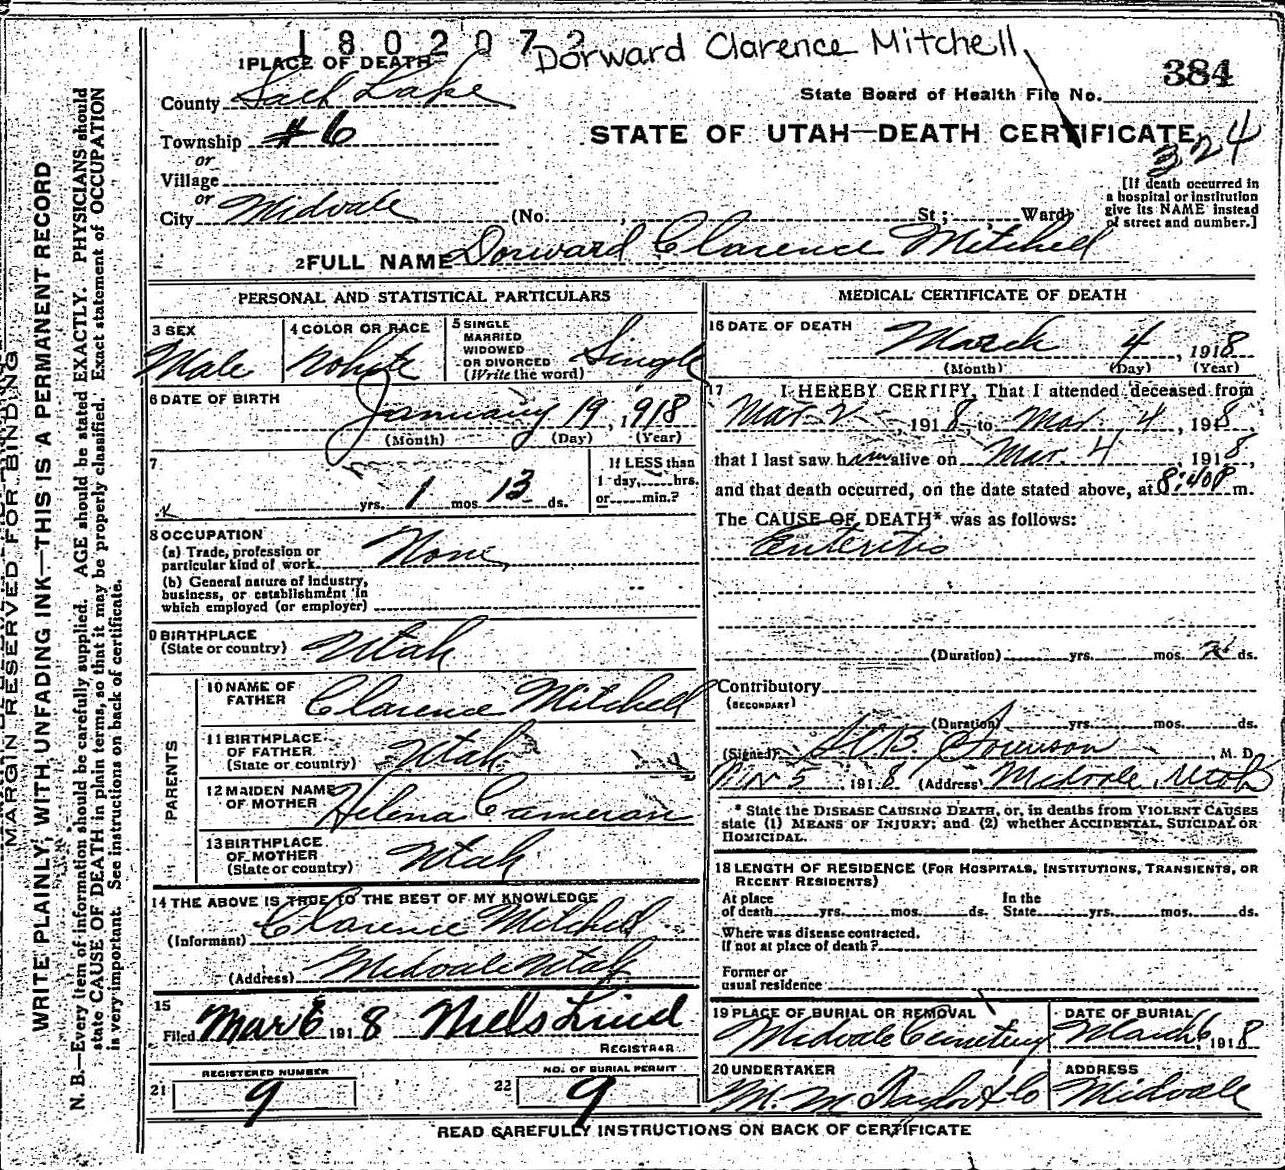 1802073
Dorward Clarence Mitchell
384
1 PLACE OF DEATH
State Board of Health File No.
County Salt Lake
Township # 6
STATE OF UTAH—DEATH CERTIFICATE
324
or
Village
or
City Midvale (No. , St ; Ward)
[If death occurred in
a hospital or institution
give its NAME instead
of street and number.]
2 FULL NAME Dorward Clarence Mitchell
PERSONAL AND STATISTICAL PARTICULARS
3 SEX
Male
4 COLOR OR RACE
White
5 SINGLE
MARRIED
WIDOWED
OR DIVORCED
(Write the word)
Single
6 DATE OF BIRTH
January 19, 1918
(Month) (Day) (Year)
7
yrs. 1 mos. 13 ds.
If LESS than
1 day, hrs.
or min.?
8 OCCUPATION
(a) Trade, profession or
particular kind of work None
(b) General nature of industry,
business, or establishment in
which employed (or employer)
9 BIRTHPLACE
(State or country) Utah
PARENTS
10 NAME OF
FATHER Clarence Mitchell
11 BIRTHPLACE
OF FATHER
(State or country) Utah
12 MAIDEN NAME
OF MOTHER Helena Cameron
13 BIRTHPLACE
OF MOTHER
(State or country) Utah
14 THE ABOVE IS TRUE TO THE BEST OF MY KNOWLEDGE
(Informant) Clarence Mitchell
(Address) Midvale Utah
15
Filed Mar 6 1918 Niels Lind
REGISTRAR
REGISTERED NUMBER
21 9
NO. OF BURIAL PERMIT
22 9
MEDICAL CERTIFICATE OF DEATH
16 DATE OF DEATH
March 4, 1918
(Month) (Day) (Year)
17 I HEREBY CERTIFY, That I attended deceased from
Mar 2, 1918 to Mar. 4, 1918,
that I last saw him alive on Mar. 4 1918,
and that death occurred, on the date stated above, at 8:40P m.
The CAUSE OF DEATH* was as follows:
Enteritis
(Duration) yrs. mos. ds.
Contributory
(SECONDARY)
(Duration) yrs. mos. ds.
(Signed) Sorenson, M. D.
5, 1918 (Address) Midvale, Utah
* State the DISEASE CAUSING DEATH, or, in deaths from VIOLENT CAUSES
state (1) MEANS OF INJURY; and (2) whether ACCIDENTAL, SUICIDAL OR
HOMICIDAL.
18 LENGTH OF RESIDENCE (FOR HOSPITALS, INSTITUTIONS, TRANSIENTS, OR
RECENT RESIDENTS)
At place
of death yrs. mos. ds.
In the
State yrs. mos. ds.
Where was disease contracted.
If not at place of death?
Former or
usual residence
19 PLACE OF BURIAL OR REMOVAL
Midvale Cemetery
DATE OF BURIAL
March 6, 1918
20 UNDERTAKER
M. M. Taylor & Co
ADDRESS
Midvale
READ CAREFULLY INSTRUCTIONS ON BACK OF CERTIFICATE
MARGIN RESERVED FOR BINDING
WRITE PLAINLY, WITH UNFADING INK—THIS IS A PERMANENT RECORD
N. B.—Every item of information should be carefully supplied. AGE should be stated EXACTLY. PHYSICIANS should
state CAUSE OF DEATH in plain terms, so that it may be properly classified. Exact statement of OCCUPATION
is very important. See instructions on back of certificate.